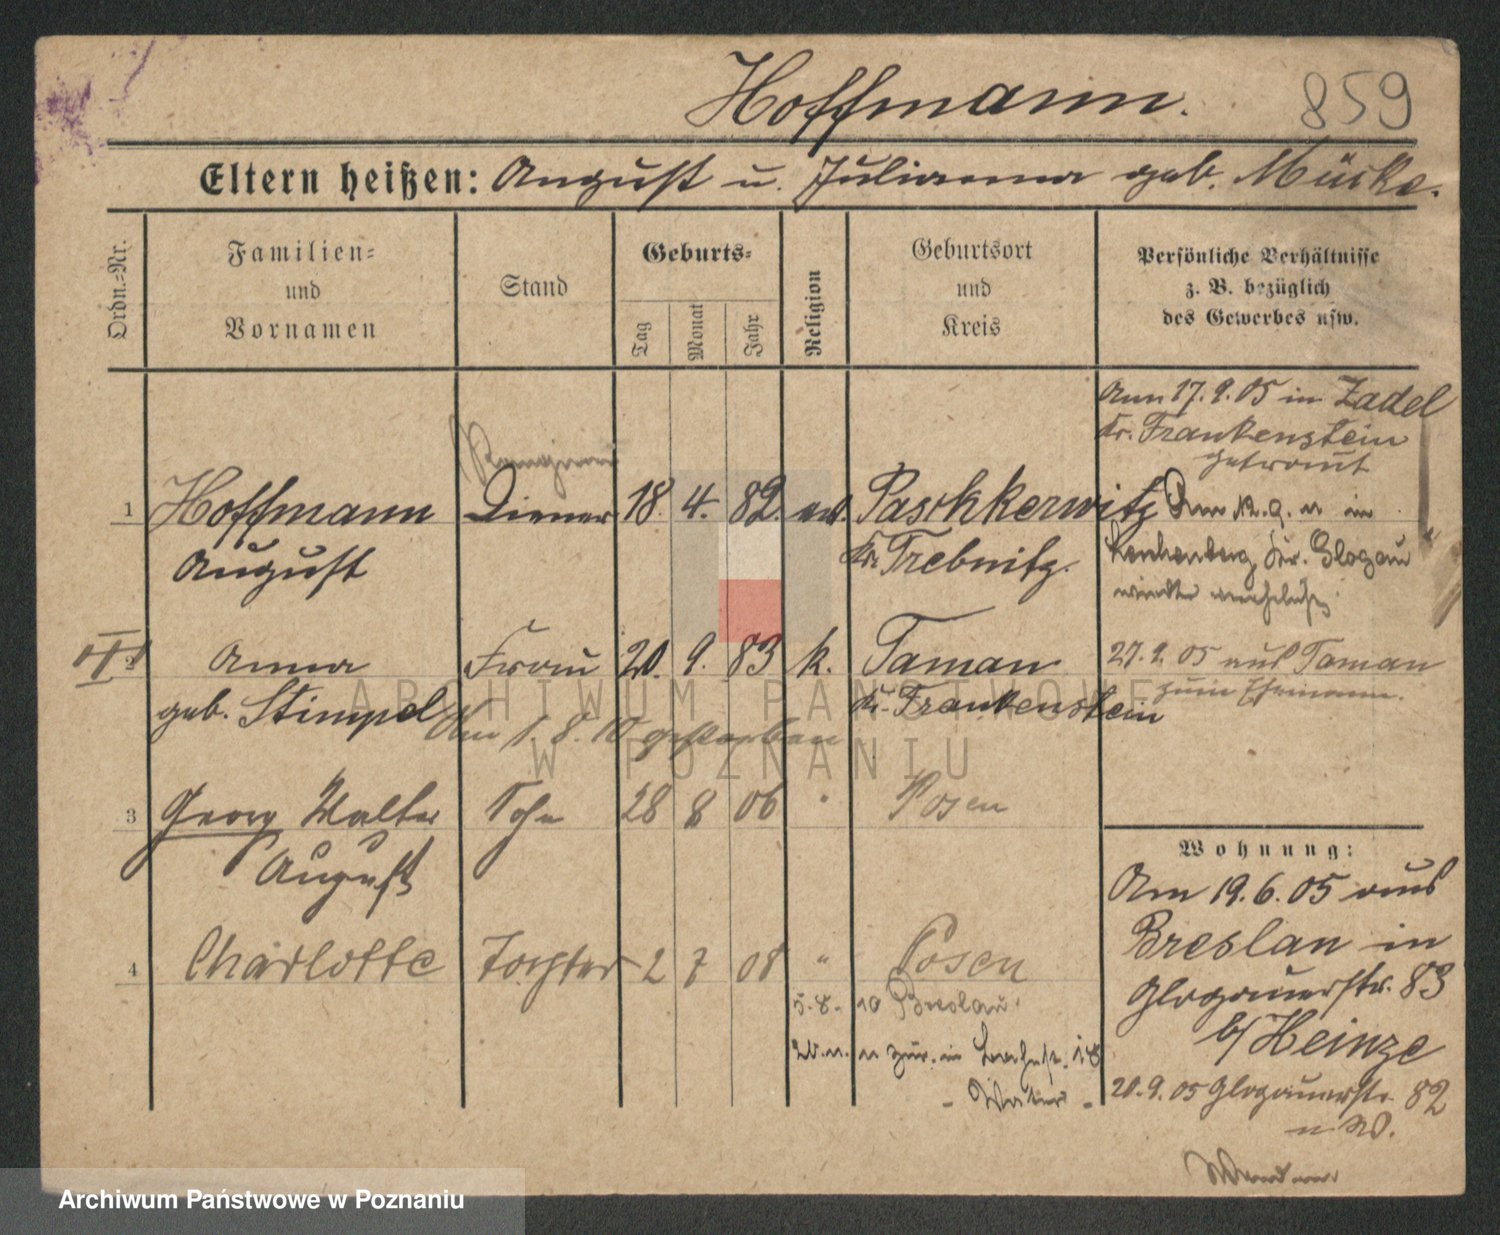 Hoffmann.
859
Eltern heißen: August u. Julianna geb. Mücke.
Ordn.=Nr.
Familien=
und
Vornamen
Stand
Geburts=
Tag
Monat
Jahr
Religion
Geburtsort
und
Kreis
Persönliche Verhältnisse
z. B. bezüglich
des Gewerbes usw.
Am 17. 9. 05 in Zadel
Kr. Frankenstein
getraut
1 Hoffmann Diener 18. 4. 82. ev. Paschkerwitz
August Kr. Trebnitz.
Kr. Glogau
wieder verehelicht
2 Anna Frau 20. 9. 83 k. Taman
geb. Stimpel Kr. Frankenstein
27. 9. 05 aus Taman
zum Ehemann.
Am 1. 8. 10 gestorben
3 Georg Walter Sohn 28 8 06 " Posen
August
4 Charlotte Tochter 2 7 08 " Posen
5. 8. 10 Breslau.
zur. in
Wohnung:
Am 19. 6. 05 aus
Breslau in
Glogauerstr. 83
b/ Heinze
20. 9. 05 Glogauerstr. 82
ARCHIWUM PAŃSTWOWE
W POZNANIU
Archiwum Państwowe w Poznaniu